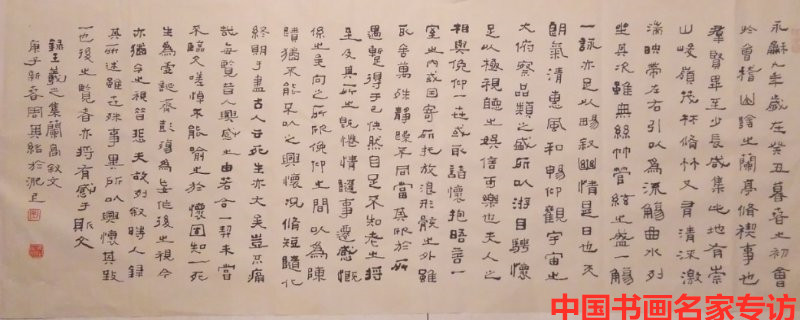 永和九年歲在癸丑暮春之初會
於會稽山陰之蘭亭脩禊事也
羣賢畢至少長咸集此地有崇
山峻嶺茂林脩竹又有清流激
湍映帶左右引以為流觴曲水列
坐其次雖無絲竹管絃之盛一觴
一詠亦足以暢叙幽情是日也天
朗氣清惠風和暢仰觀宇宙之
大俯察品類之盛所以游目騁懷
足以極視聽之娛信可樂也夫人之
相與俯仰一世或取諸懷抱晤言一
室之內或因寄所託放浪形骸之外雖
取舍萬殊靜躁不同當其欣於所
遇暫得於己快然自足不知老之將
至及其所之既惓情隨事遷感慨
係之矣向之所欣俛仰之間以為陳
蹟猶不能不以之興懷況脩短隨化
終期于盡古人云死生亦大矣豈不痛
哉每覽昔人興感之由若合一契未嘗
不臨文嗟悼不能喻之於懷固知一死
生為虛誕齊彭殤為妄作後之視今
亦猶今之視昔悲夫故列叙時人錄
其所述雖世殊事異所以興懷其致
一也後之覽者亦將有感于斯文
錄王羲之集蘭亭叙文
庚子新春周其
中国书画名家专访